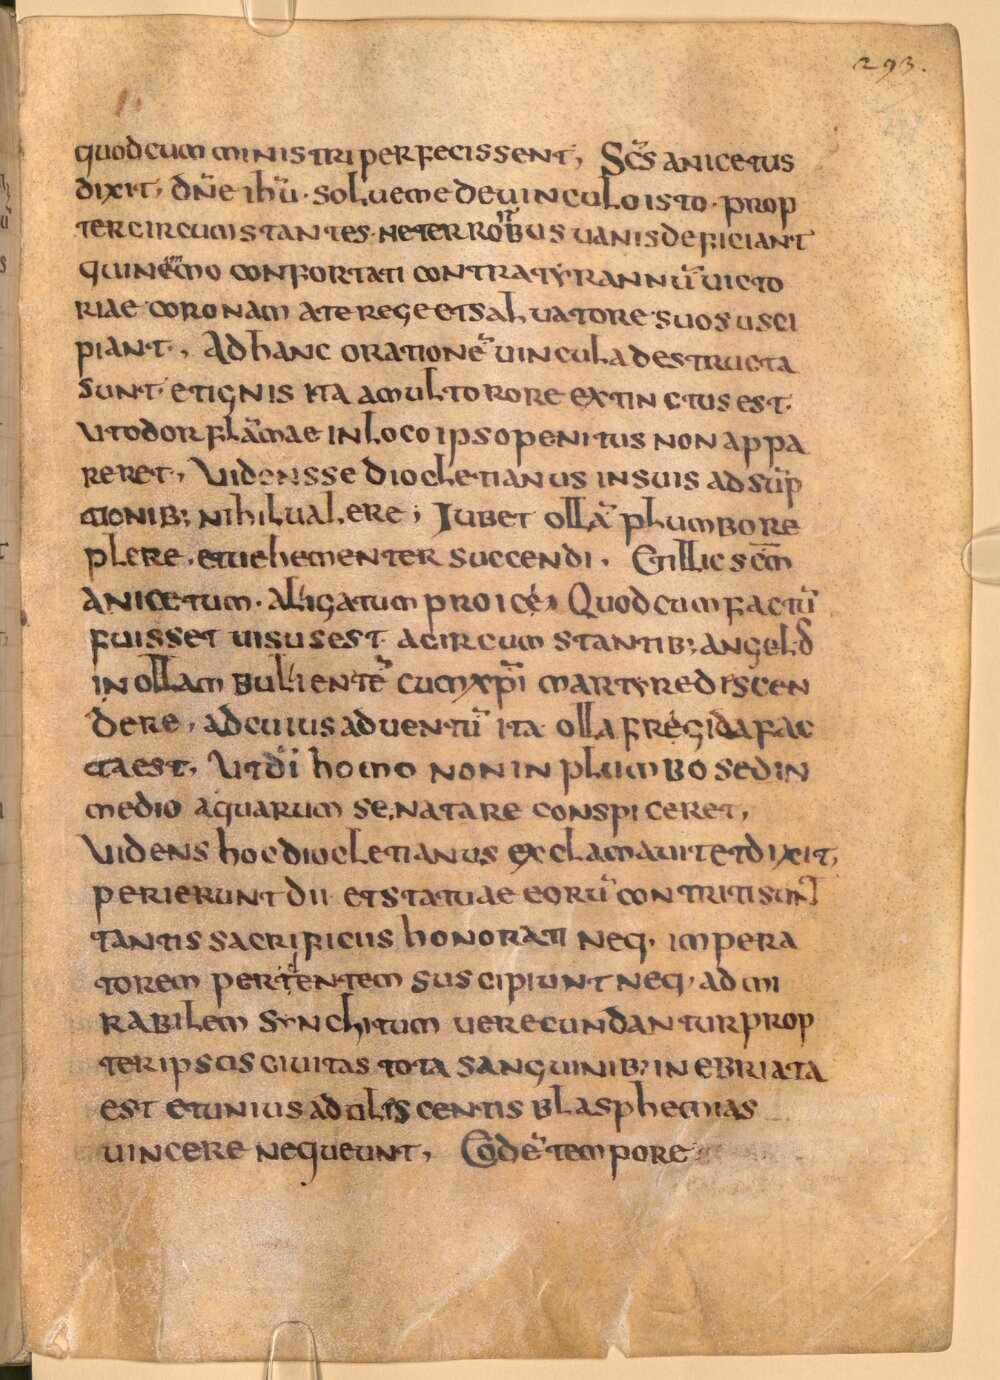 293.
quod cum ministri perfecissent, Scs̄ anicetus
dixit, dn̄e ihū · solue me de uinculo isto · prop
ter circumstantes · ne terroribus uanis deficiant
quinēmo confortati contra tyrannū uicto
riae coronam a te rege et saluatore suo susci
piant, Ad hanc orationē uincula destructa
sunt · et ignis ita a multo rore extinctus est ·
Ut odor flāmae in loco ipso penitus non appa
reret, Uidens se diocletianus in suis adsūp
tionib; nihil ualere; Iubet ollā plumbo re
plere · et uehementer succendi · Et illic scm̄
anicetum · aligatum proice, Quod cum factū
fuisset uisus est a circumstantib; angelus
in ollam bulientē cum xpī martyre discen
dere, ad cuius aduentū ita olla fregida fac
ta est, Ut dī homo non in plumbo sed in
medio aquarum se natare conspiceret,
Uidens hoc diocletianus exclamauit et dixit,
perierunt dii et statuae eorū contriti sunt
tantis sacrificiis honorati neq. impera
torem pertentem suscipiunt neq. ad mi
rabilem synchitum uerecundantur prop
ter ipsos ciuitas tota sanguinib; inebriata
est et unius adoliscentis blasphemias
uincere nequeunt, Eodē tempore